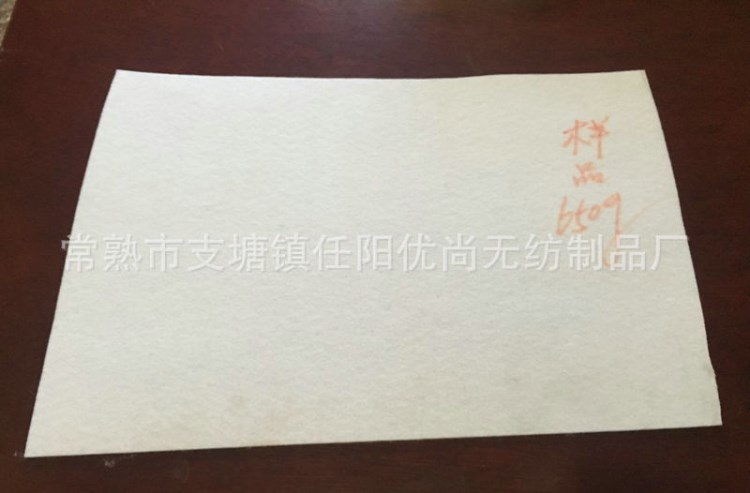 样
品
650g
常熟市支塘镇任阳优尚无纺制品厂